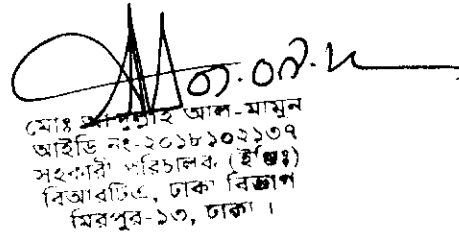 ০১.০৭.২
মোঃ আব্দুল্লাহ আল-মামুন
আইডি নং-২০১৮১০২১৩৭
সহকারী পরিচালক (ইঞ্জিঃ)
বিআরটিএ, ঢাকা বিভাগ
মিরপুর-১৩, ঢাকা ।